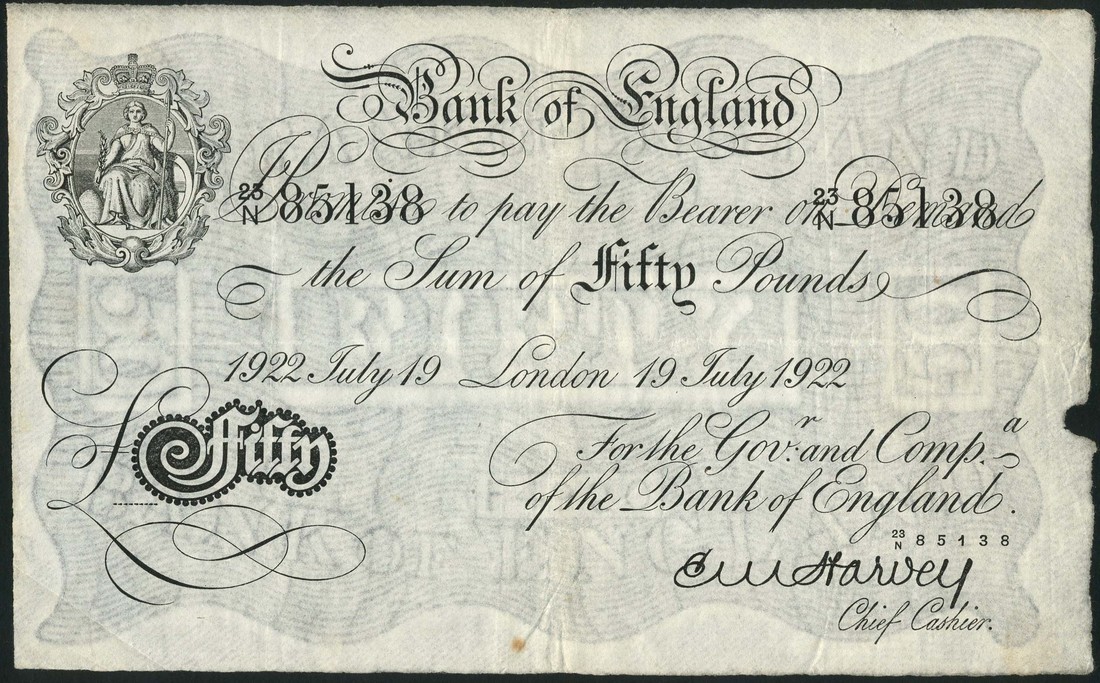 Bank of England
23/N 85138 23/N 85138
I Promise to pay the Bearer on Demand
the Sum of Fifty Pounds
1922 July 19 London 19 July 1922
£Fifty
For the Govr. and Compa.
of the Bank of England.
23/N 85138
E M Harvey
Chief Cashier.